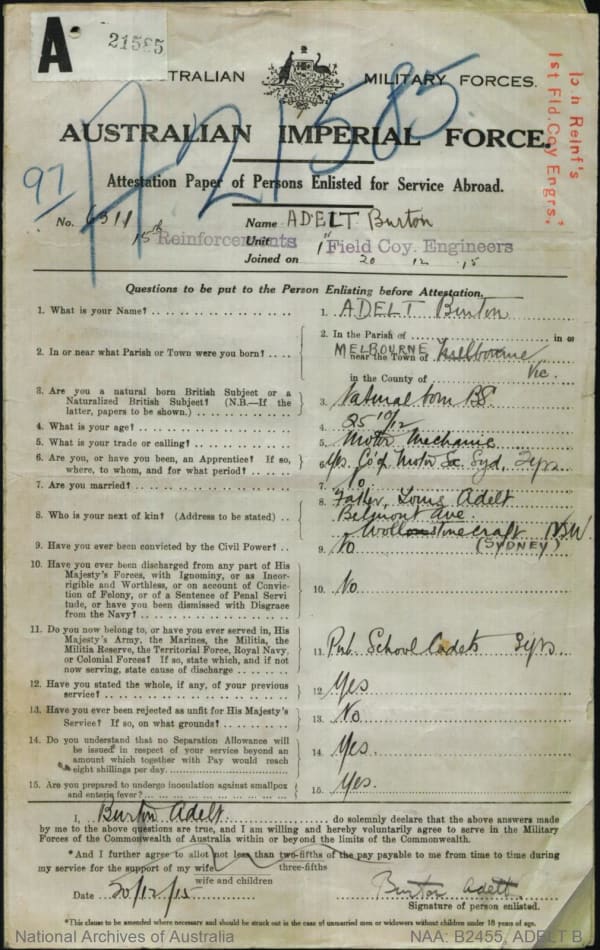 A 21585
AUSTRALIAN MILITARY FORCES.
AUSTRALIAN IMPERIAL FORCE.
A21585
97
15th Reinf's
1st Fld. Coy Engrs.
Attestation Paper of Persons Enlisted for Service Abroad.
No. 6311 Name ADELT Burton
15th Reinforcements Unit 1st Field Coy. Engineers
Joined on 20 12 15
Questions to be put to the Person Enlisting before Attestation.
1. What is your Name? 1. ADELT Burton
2. In or near what Parish or Town were you born? 2. In the Parish of in or
near the Town of MELBOURNE Melbourne
in the County of Vic.
3. Are you a natural born British Subject or a
Naturalized British Subject? (N.B.—If the
latter, papers to be shown.) 3. Natural born BS.
4. What is your age? 4. 35 10/12
5. What is your trade or calling? 5. Motor Mechanic
6. Are you, or have you been, an Apprentice? If so,
where, to whom, and for what period? 6. Yes. Motor Syd,
7. Are you married? 7. No.
8. Who is your next of kin? (Address to be stated) 8. Father, Louis Adelt
Belmont Ave
Wollstonecraft NSW
(SYDNEY)
9. Have you ever been convicted by the Civil Power? 9. No
10. Have you ever been discharged from any part of His
Majesty's Forces, with Ignominy, or as Incor-
rigible and Worthless, or on account of Convic-
tion of Felony, or of a Sentence of Penal Servi
tude, or have you been dismissed with Disgrace
from the Navy? 10. No.
11. Do you now belong to, or have you ever served in, His
Majesty's Army, the Marines, the Militia, the
Militia Reserve, the Territorial Force, Royal Navy,
or Colonial Forces? If so, state which, and if not
now serving, state cause of discharge 11. Pub. School Cadets 3yrs.
12. Have you stated the whole, if any, of your previous
service? 12 Yes
13. Have you ever been rejected as unfit for His Majesty's
Service? If so, on what grounds? 13. No.
14. Do you understand that no Separation Allowance will
be issued in respect of your service beyond an
amount which together with Pay would reach
eight shillings per day. 14 Yes.
15. Are you prepared to undergo inoculation against smallpox
and enteric fever? 15. Yes.
I, Burton Adelt do solemnly declare that the above answers made
by me to the above questions are true, and I am willing and hereby voluntarily agree to serve in the Military
Forces of the Commonwealth of Australia within or beyond the limits of the Commonwealth.
*And I further agree to allot not less than two-fifths of the pay payable to me from time to time during
three-fifths
my service for the support of my wife
wife and children
Date 20/12/15 Burton Adelt
Signature of person enlisted.
*This clause to be amended where necessary and should be struck out in the case of unmarried men or widowers without children under 18 years of age.
National Archives of Australia NAA: B2455, ADELT B